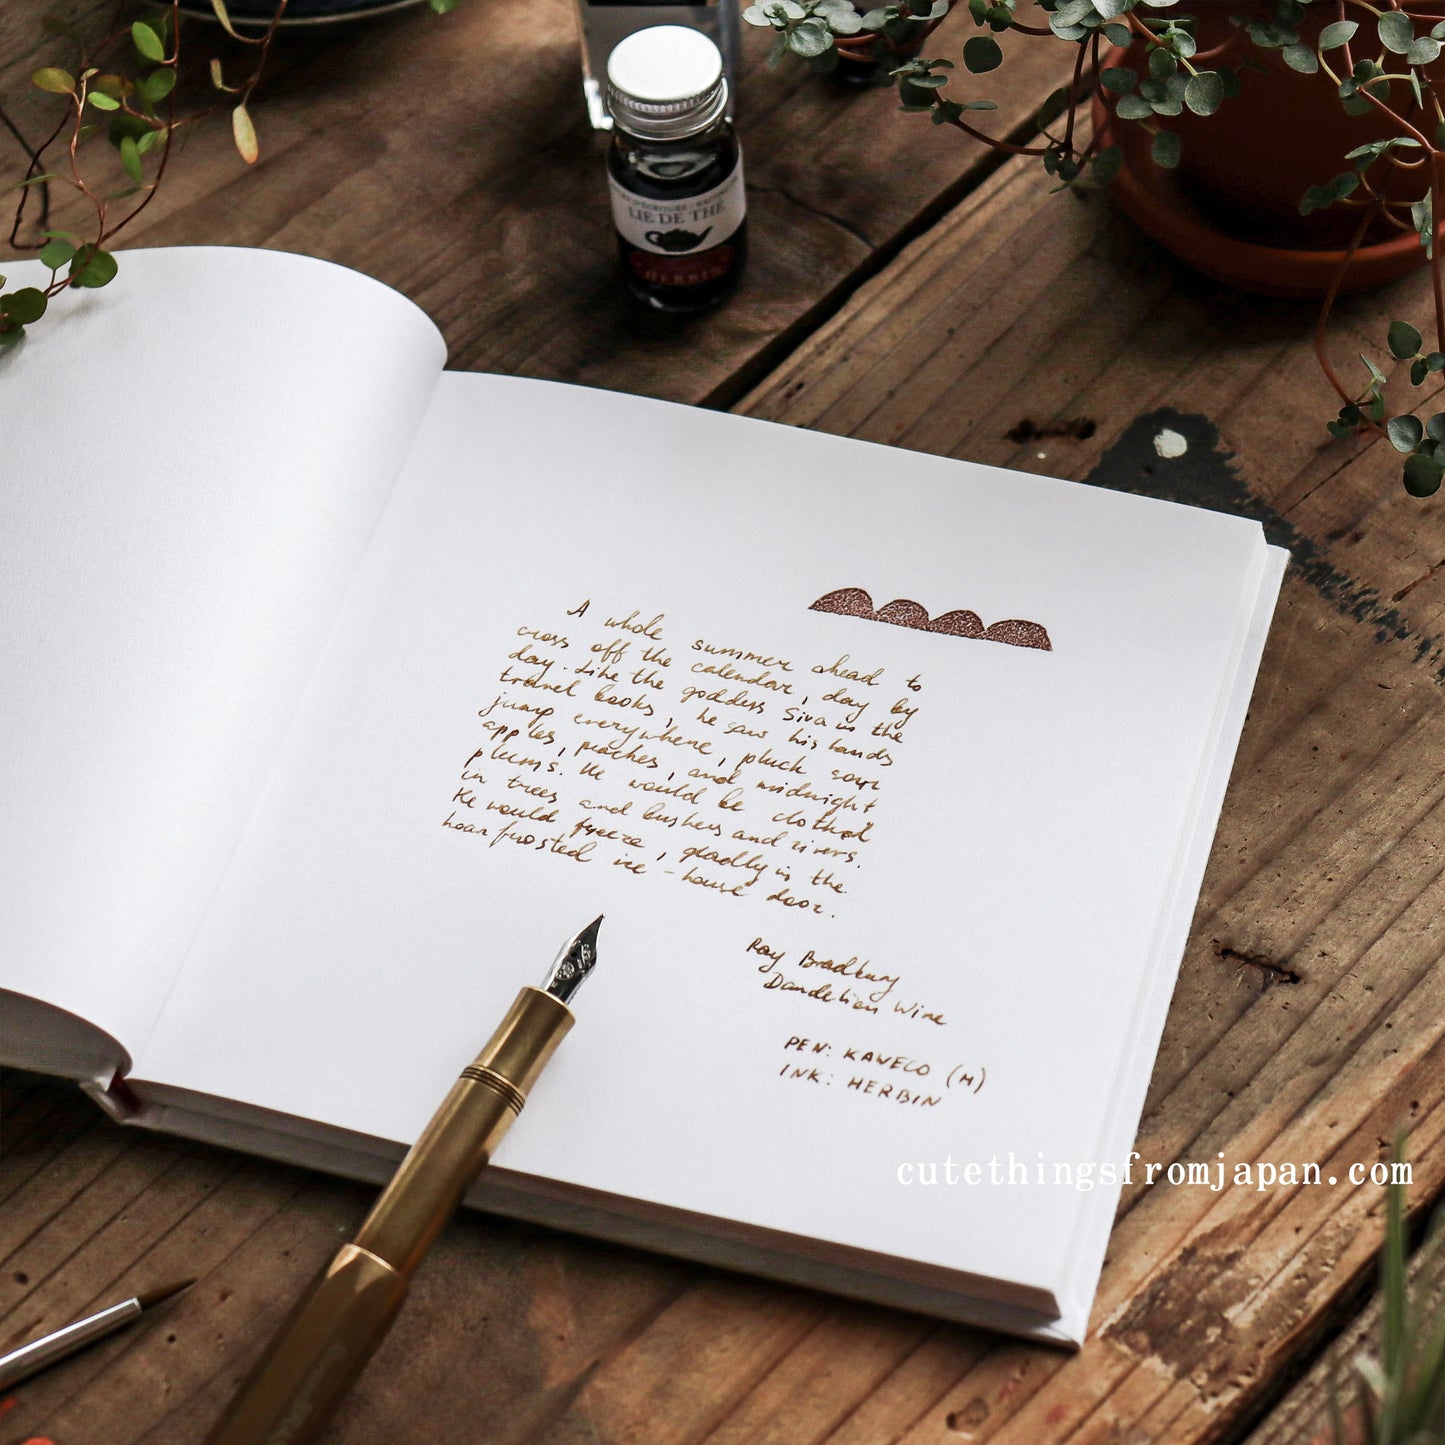 LIE DE THÉ
HERBIN
A whole summer ahead to
cross off the calendar, day by
day. Like the goddess Siva in the
travel books, he saw his hands
jump everywhere, pluck sour
apples, peaches, and midnight
plums. He would be clothed
in trees and bushes and rivers.
He would freeze, gladly in the
hoarfrosted ice-house door.
Ray Bradbury
Dandelion Wine
PEN: KAWECO (M)
INK: HERBIN
cutethingsfromjapan.com